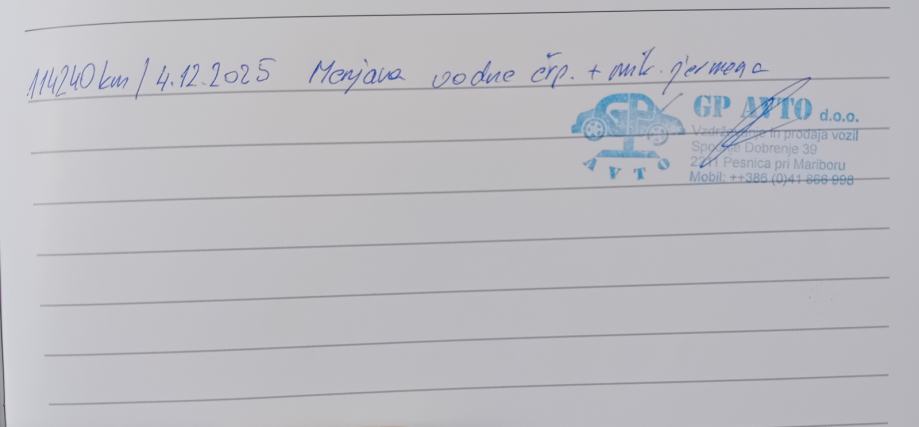 114240km / 4.12.2025 Menjava vodne črp. + mik. jermena
GP AVTO d.o.o.
Vzdrževanje in prodaja vozil
Spodnje Dobrenje 39
2211 Pesnica pri Mariboru
Mobil: ++386 (0)41 666 998
AVTO